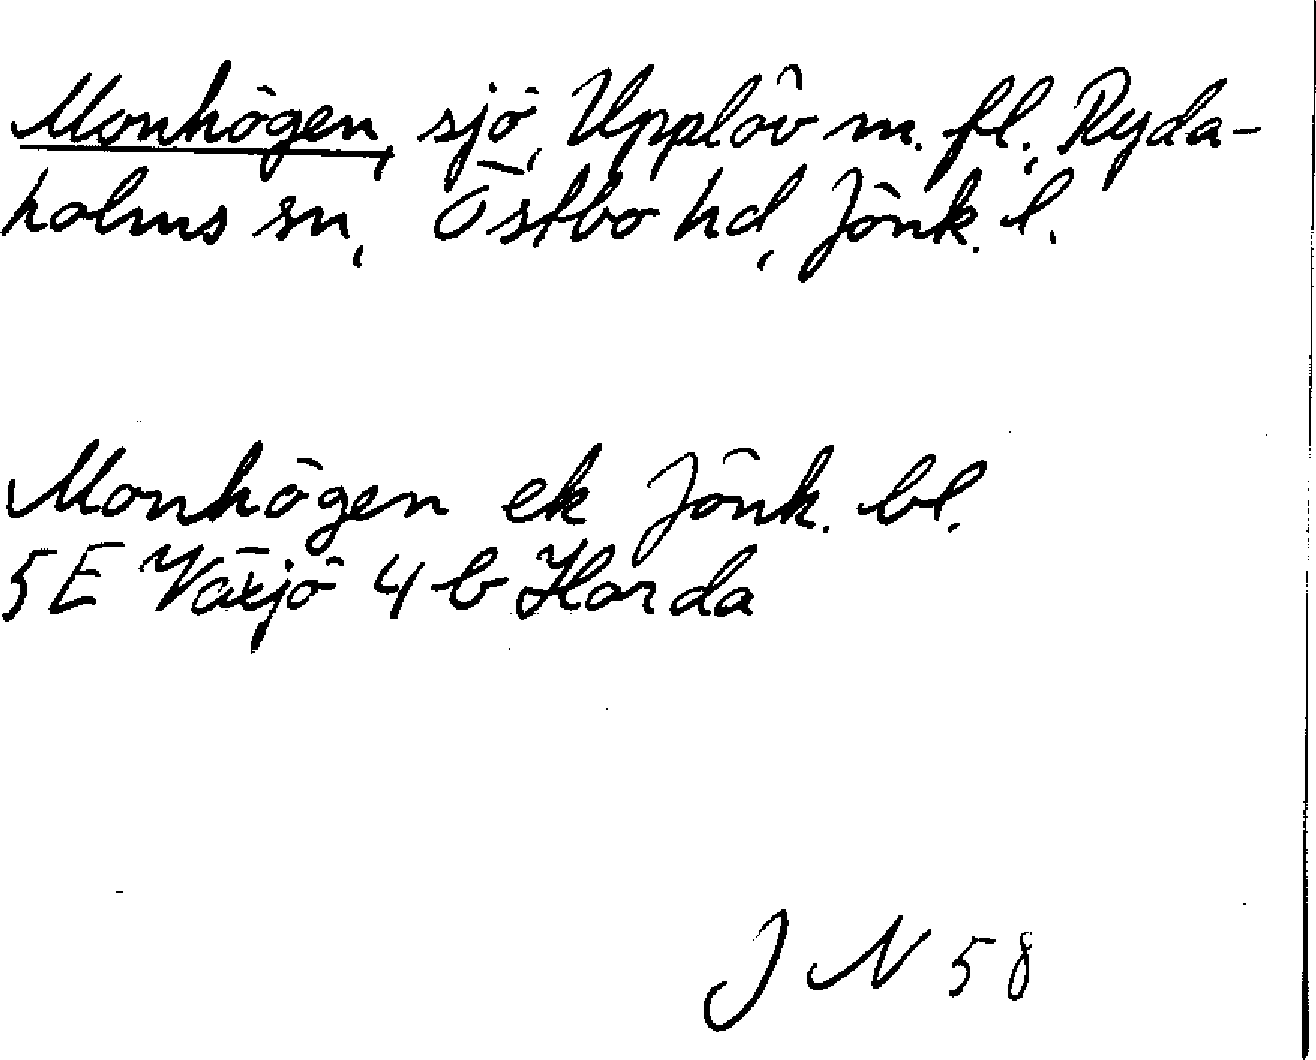 Monhögen, sjö, Upplöv m. fl., Ryda-
holms sn, Östbo hd, Jönk. l.
Monhögen ek Jönk. bl.
5E Växjö 4 b Horda
J N 58